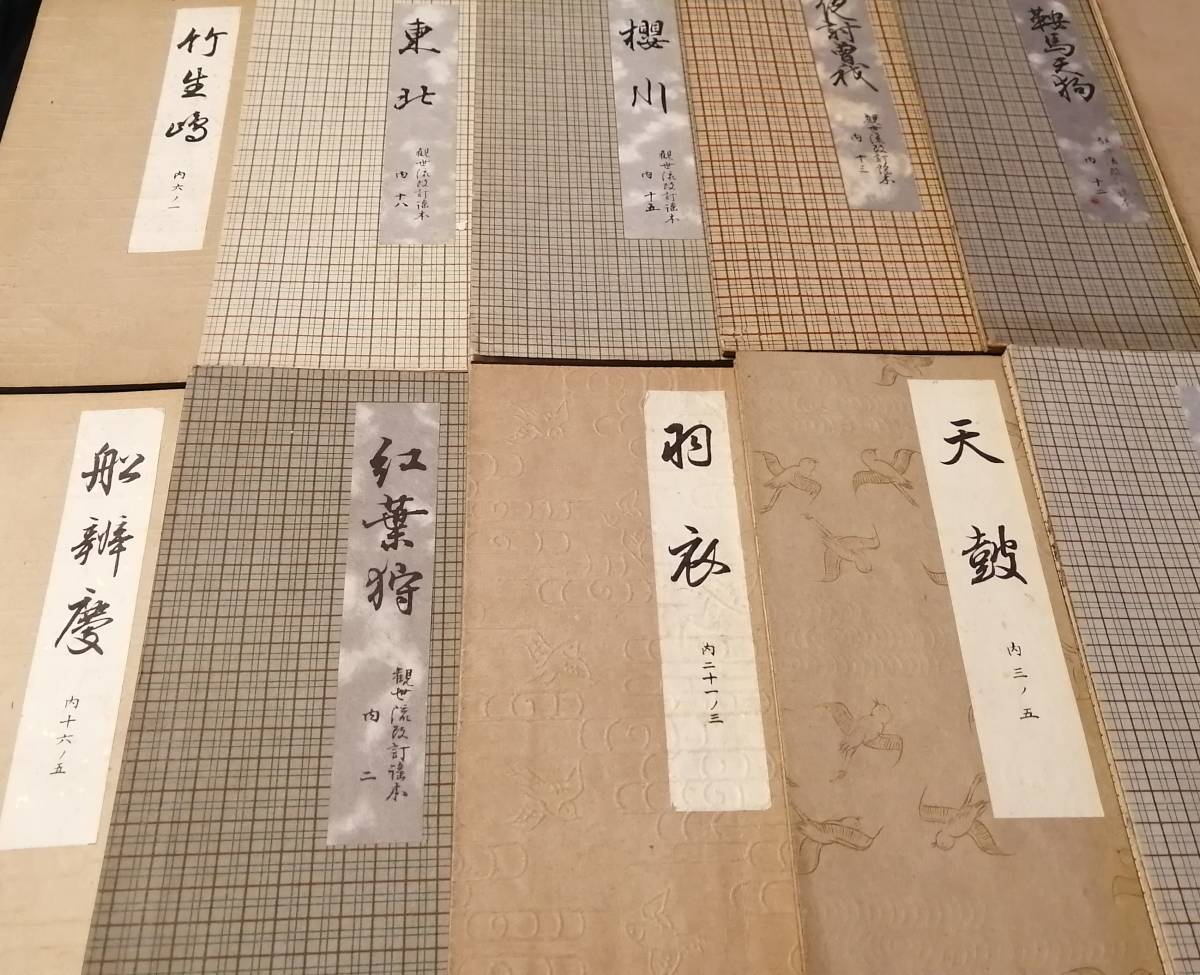 竹生嶋
内六ノ一
東北
觀世流改訂謠本
内 十八
櫻川
觀世流改訂謠本
内 十五
夜討曽我
觀世流改訂謠本
内 十三
鞍馬天狗
内 十二
船辨慶
内十六ノ五
紅葉狩
觀世流改訂謠本
内 二
羽衣
内二十一ノ三
天鼓
内三ノ五